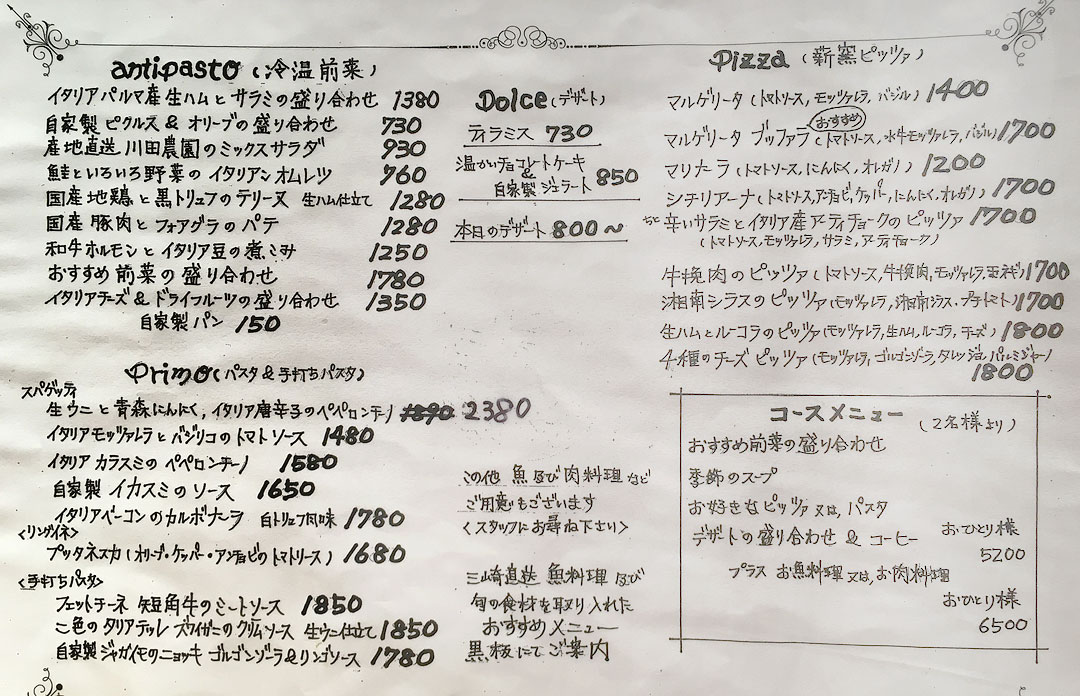 antipasto (冷温前菜)
イタリアパルマ産生ハムとサラミの盛り合わせ 1380
自家製ピクルス & オリーブの盛り合わせ 730
産地直送川田農園のミックスサラダ 930
鮭といろいろ野菜のイタリアンオムレツ 760
国産地鶏と黒トリュフのテリーヌ 生ハム仕立て 1280
国産豚肉とフォアグラのパテ 1280
和牛ホルモンとイタリア豆の煮こみ 1250
おすすめ前菜の盛り合わせ 1780
イタリアチーズ & ドライフルーツの盛り合わせ 1350
自家製パン 150
Primo (パスタ & 手打ちパスタ)
スパゲッティ
生ウニと青森にんにく,イタリア唐辛子のペペロンチーノ 1890 2380
イタリアモッツァレラとバジリコのトマトソース 1480
イタリアカラスミのペペロンチーノ 1580
自家製イカスミのソース 1650
イタリアベーコンのカルボナーラ 白トリュフ風味 1780
<リングイネ>
プッタネスカ (オリーブ・ケッパー・アンチョビのトマトソース) 1680
<手打ちパスタ>
フェットチーネ 短角牛のミートソース 1850
二色のタリアテッレ ズワイガニのクリームソース 生ウニ仕立て 1850
自家製ジャガイモのニョッキ ゴルゴンゾーラ&リンゴソース 1780
Dolce (デザート)
ティラミス 730
温かいチョコレートケーキ
&
自家製ジェラート 850
本日のデザート 800〜
この他 魚及び肉料理など
ご用意もございます
<スタッフにお尋ね下さい>
三崎直送 魚料理及び
旬の食材を取り入れた
おすすめメニュー
黒板にてご案内
Pizza (薪窯ピッツァ)
マルゲリータ (トマトソース, モッツァレラ, バジル) 1400
おすすめ
マルゲリータ ブッファラ (トマトソース, 水牛モッツァレラ, バジル) 1700
マリナーラ (トマトソース, にんにく, オレガノ) 1200
シチリアーナ (トマトソース, アンチョビ, ケッパー, にんにく, オレガノ) 1700
ちと辛いサラミとイタリア産アーティチョークのピッツァ 1700
(トマトソース, モッツァレラ, サラミ, アーティチョーク)
牛挽肉のピッツァ (トマトソース, 牛挽肉, モッツァレラ, 玉ネギ) 1700
湘南シラスのピッツァ (モッツァレラ, 湘南シラス・プチトマト) 1700
生ハムとルーコラのピッツァ (モッツァレラ, 生ハム, ルーコラ, チーズ) 1800
4種のチーズピッツァ (モッツァレラ, ゴルゴンゾーラ, タレッジョ, パルミジャーノ)
1800
コースメニュー (2名様より)
おすすめ前菜の盛り合わせ
季節のスープ
お好きなピッツァ又は, パスタ
デザートの盛り合わせ & コーヒー おひとり様
5200
プラス お魚料理又は, お肉料理
おひとり様
6500